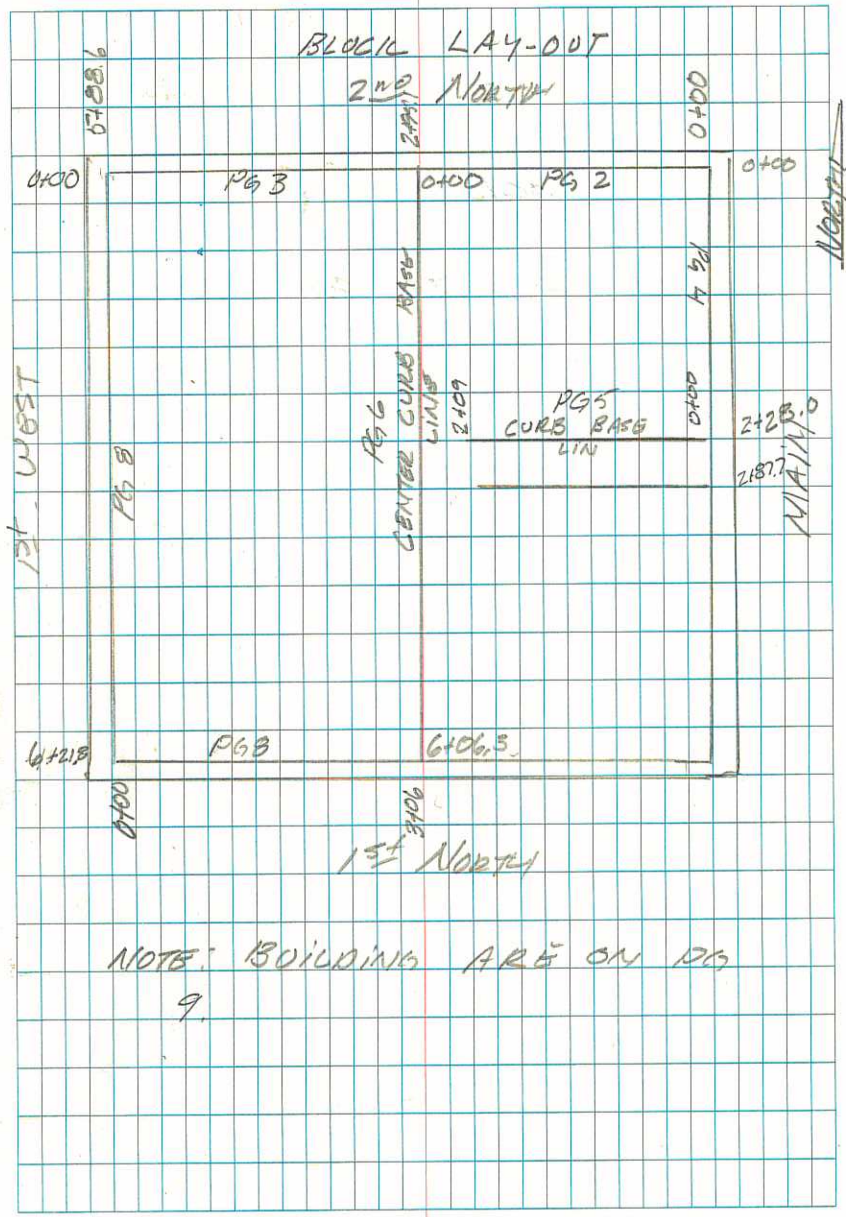 BLOCK LAY-OUT
2nd North
5+88.6
0+00
0+00
PG 3
0+00
PG 2
0+00
NORTH
PG 4
1st WEST
PG 8
PG 6
CENTER CURB BASE
LINE
2+09
PG 5
CURB BASE
LIN
0+00
2+23.0
2+87.7
MAIN
6+21.8
PG 8
6+06.3
0+00
3+06
1st North
NOTE: BUILDING ARE ON PG
9.